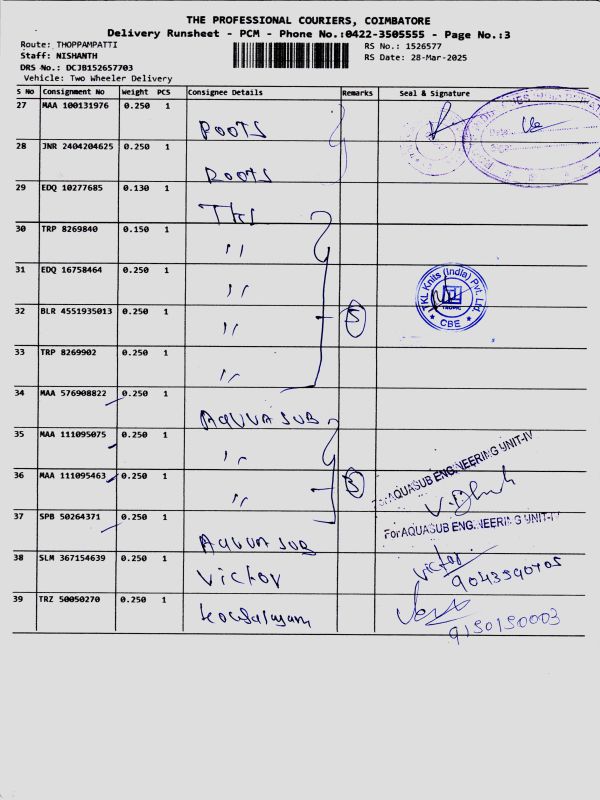 THE PROFESSIONAL COURIERS, COIMBATORE
Delivery Runsheet - PCM - Phone No.:0422-3505555 - Page No.:3
Route: THOPPAMPATTI
RS No.: 1526577
Staff: NISHANTH
RS Date: 28-Mar-2025
DRS No.: DCJB152657703
Vehicle: Two Wheeler Delivery
S No Consignment No Weight PCS Consignee Details Remarks Seal & Signature
27 MAA 100131976 0.250 1
ROOTS
28 JNR 2404204625 0.250 1
ROOTS
29 EDQ 10277685 0.130 1
TKL
30 TRP 8269840 0.150 1
〃
31 EDQ 16758464 0.250 1
〃
TKL Knits (India) Pvt. Ltd.
CBE
32 BLR 4551935013 0.250 1
〃 5
33 TRP 8269902 0.250 1
〃
34 MAA 576908822 0.250 1
AQUUA SUB
35 MAA 111095075 0.250 1
〃
For AQUASUB ENGINEERING UNIT-IV
36 MAA 111095463 0.250 1
〃 3
37 SPB 50264371 0.250 1
For AQUASUB ENGINEERING UNIT-IV
AQUUA SUB
38 SLM 367154639 0.250 1
Victor
Victor
39 TRZ 50050270 0.250 1
Kowsalyam
9150150003